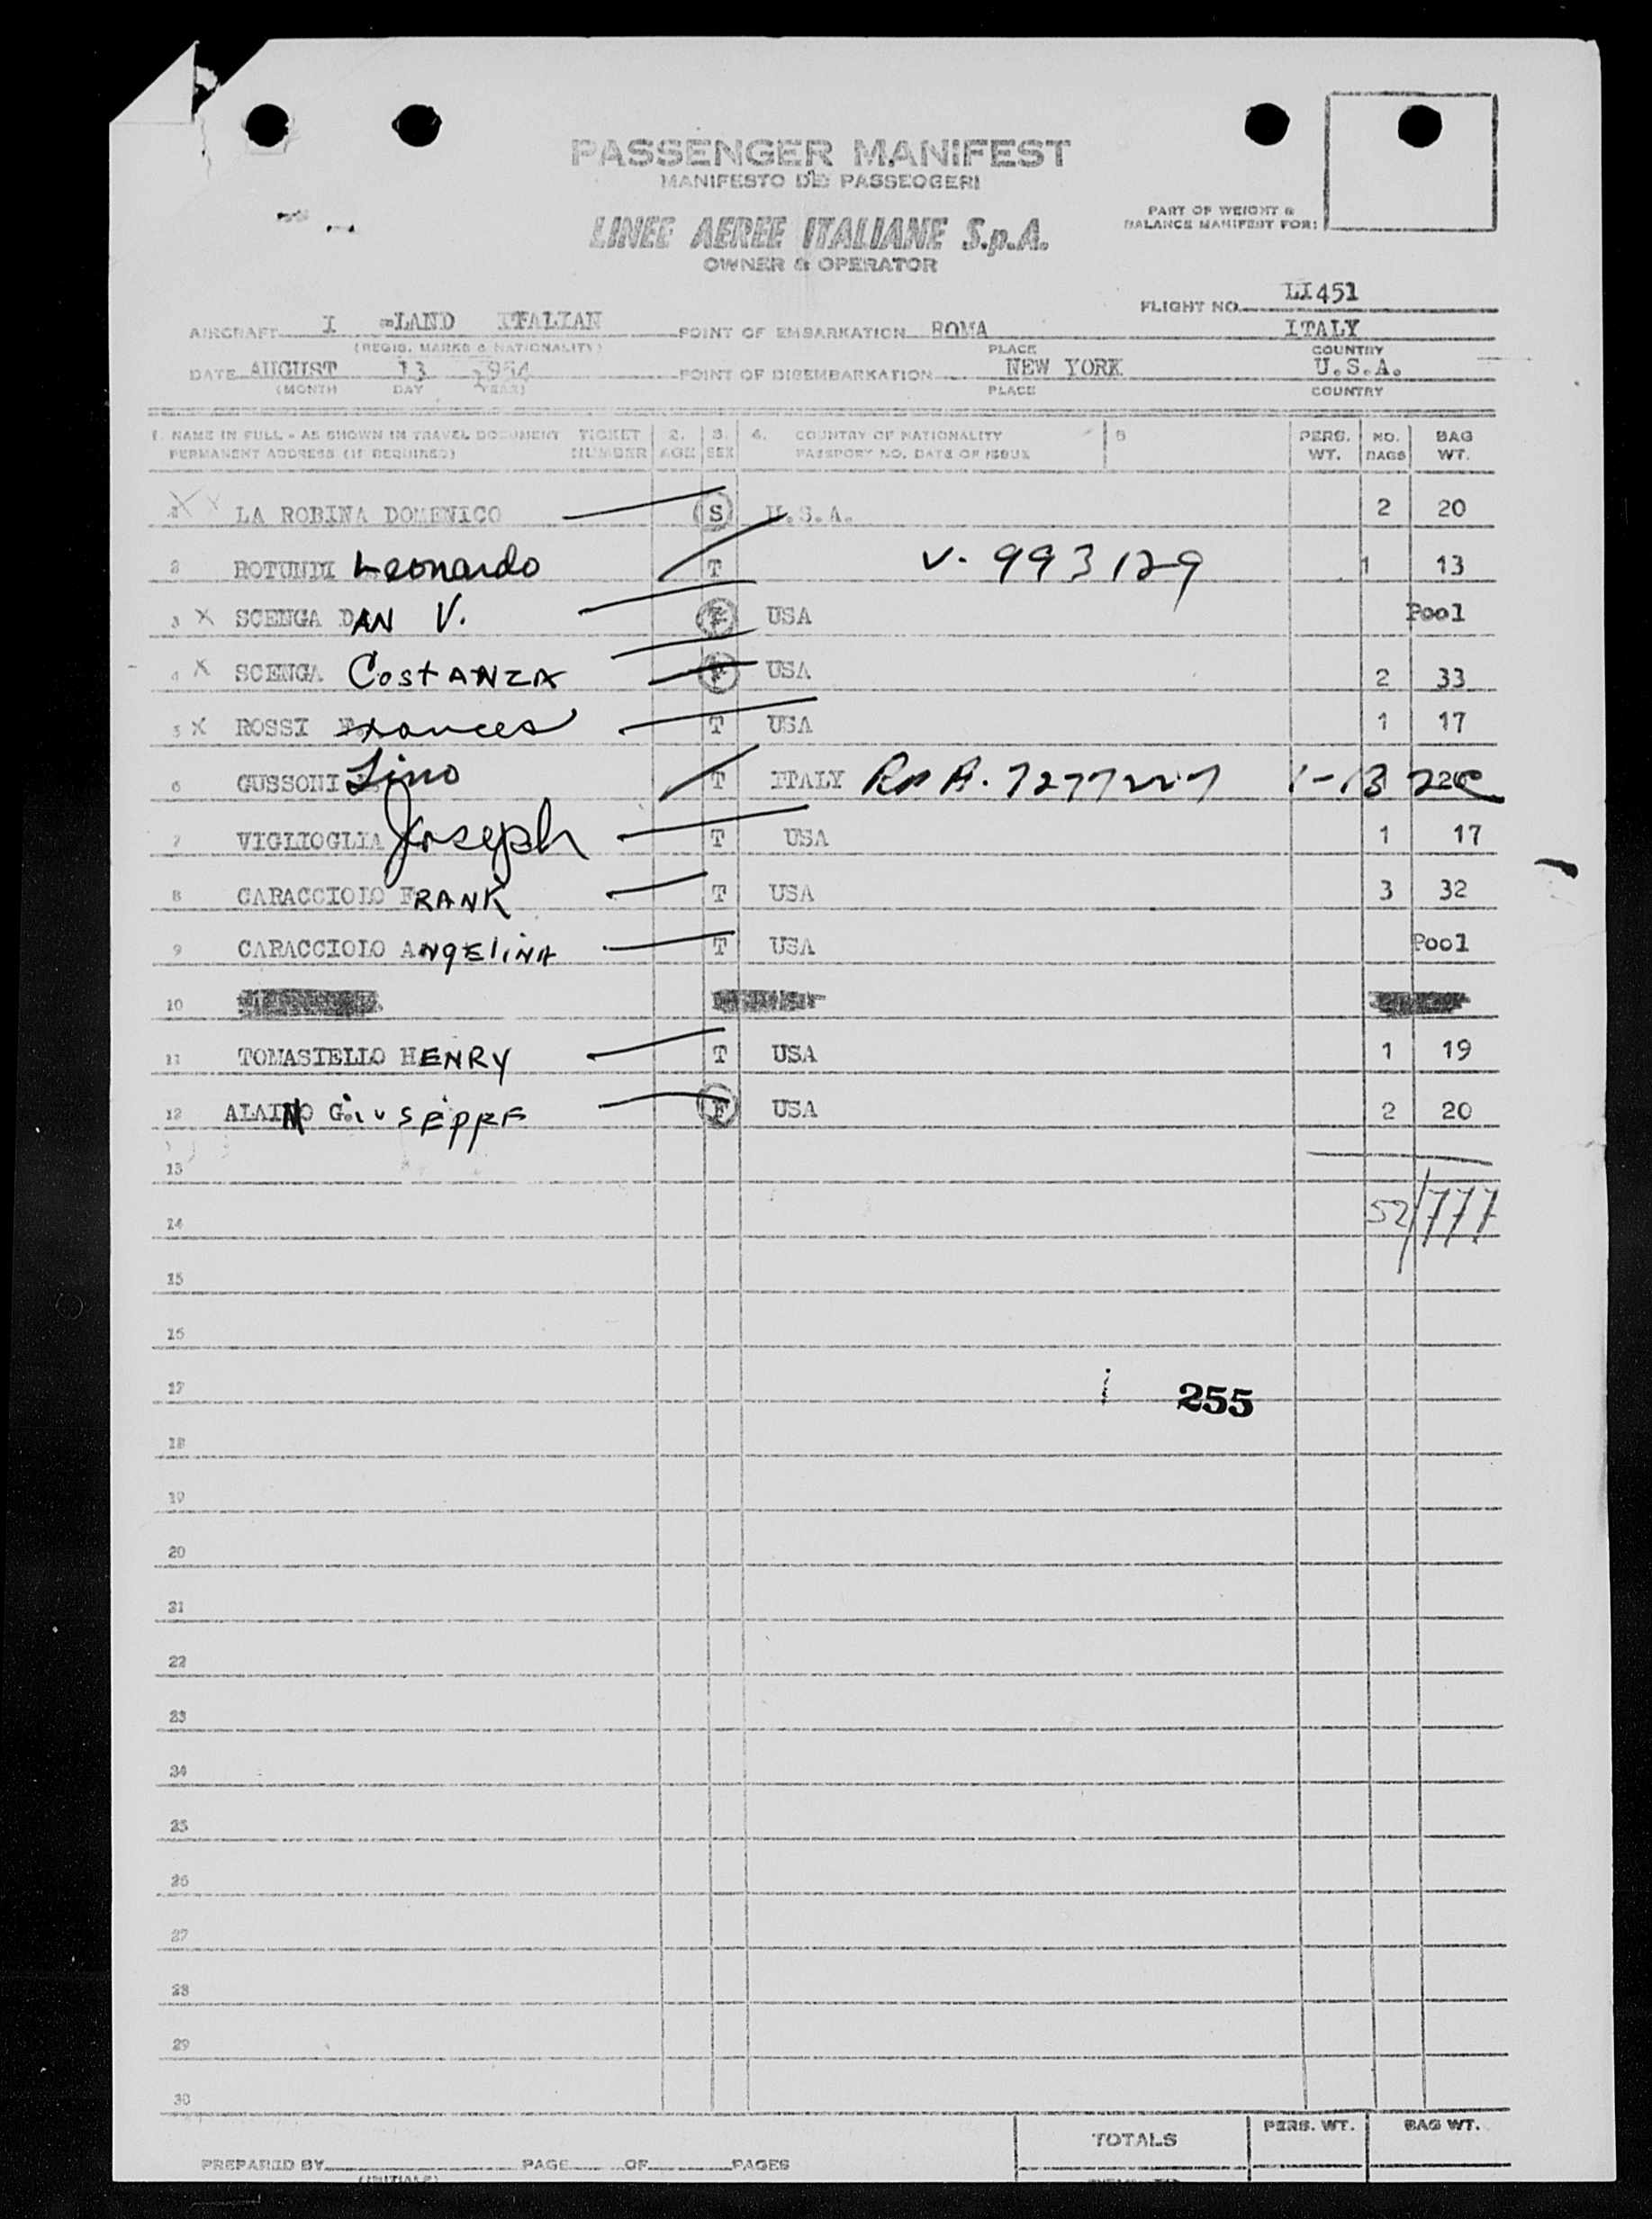 PASSENGER MANIFEST
MANIFESTO DEI PASSEGGERI
LINEE AEREE ITALIANE S.p.A.
OWNER & OPERATOR
PART OF WEIGHT &
BALANCE MANIFEST FOR:
FLIGHT NO. LI451
AIRCRAFT I -LAND ITALIAN POINT OF EMBARKATION ROMA ITALY
(REGIS. MARKS & NATIONALITY) PLACE COUNTRY
DATE AUGUST 13 1954 POINT OF DISEMBARKATION NEW YORK U.S.A.
(MONTH DAY YEAR) PLACE COUNTRY
1. NAME IN FULL - AS SHOWN IN TRAVEL DOCUMENT TICKET 2. 3. 4. COUNTRY OF NATIONALITY 5 PERS. NO. BAG
PERMANENT ADDRESS (IF REQUIRED) NUMBER AGE SEX PASSPORT NO. DATE OF ISSUE WT. BAGS WT.
X X LA ROBINA DOMENICO S U.S.A. 2 20
2 ROTUNDI Leonardo T V. 993129 1 13
3 X SCENGA DAN V. F USA Pool
4 X SCENGA COSTANZA F USA 2 33
5 X ROSSI Frances T USA 1 17
6 GUSSONI Lino T ITALY 1-13
7 VIGLIOGLIA Joseph T USA 1 17
8 CARACCIOLO FRANK T USA 3 32
9 CARACCIOLO ANGELINA T USA Pool
10
11 TOMASIELLO HENRY T USA 1 19
12 ALAIMO GIUSEPPE F USA 2 20
13
14 52/777
15
16
17 255
18
19
20
21
22
23
24
25
26
27
28
29
30
TOTALS PERS. WT. BAG WT.
PREPARED BY PAGE OF PAGES
(INITIALS)